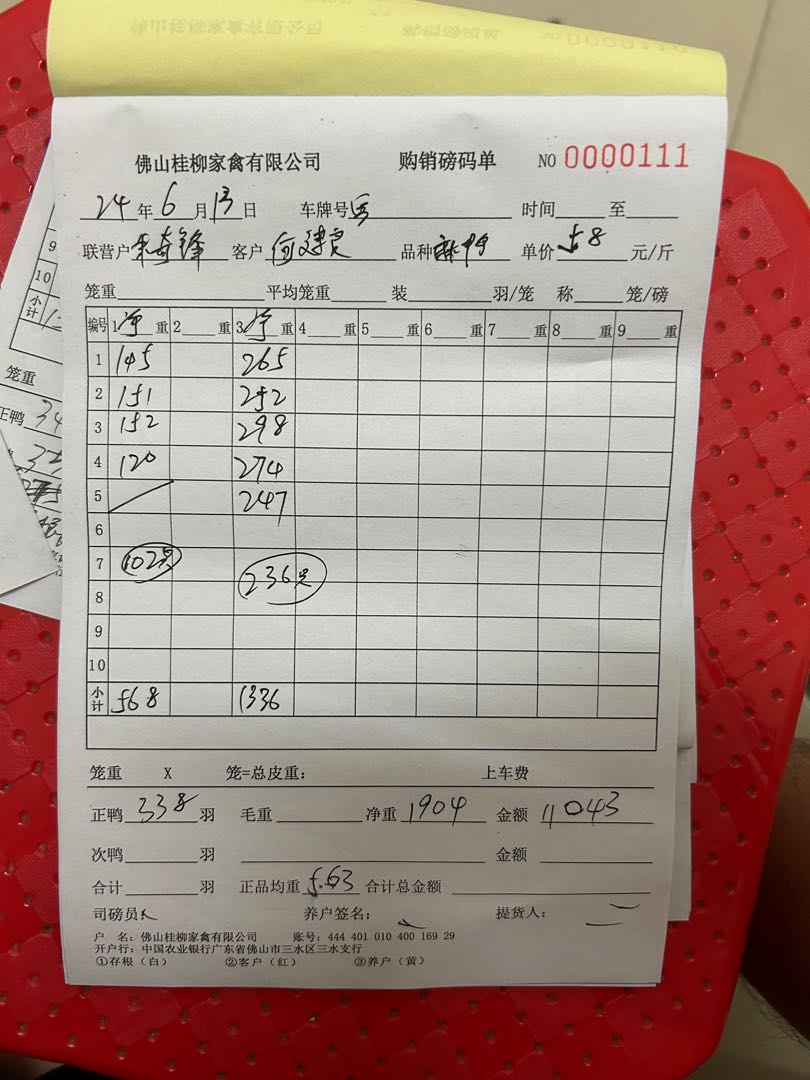 佛山桂柳家禽有限公司 购销磅码单 NO 0000111
24 年 6 月 13 日 车牌号 时间 至
联营户 客户 何建良 品种 麻鸭 单价 5.8 元/斤
笼重 平均笼重 装 羽/笼 称 笼/磅
编号 1 净 重 2 重 3 净 重 4 重 5 重 6 重 7 重 8 重 9 重
1 145 265
2 151 252
3 152 298
4 120 274
5 247
6
7 102只
8 236只
9
10
小计 568 1336
笼重 X 笼=总皮重: 上车费
正鸭 338 羽 毛重 净重 1904 金额 11043
次鸭 羽 金额
合计 羽 正品均重 5.63 合计总金额
司磅员: 养户签名: 提货人:
户 名: 佛山桂柳家禽有限公司 账号: 444 401 010 400 169 29
开户行: 中国农业银行广东省佛山市三水区三水支行
①存根(白) ②客户(红) ③养户(黄)
9
10
小计
笼重
正鸭